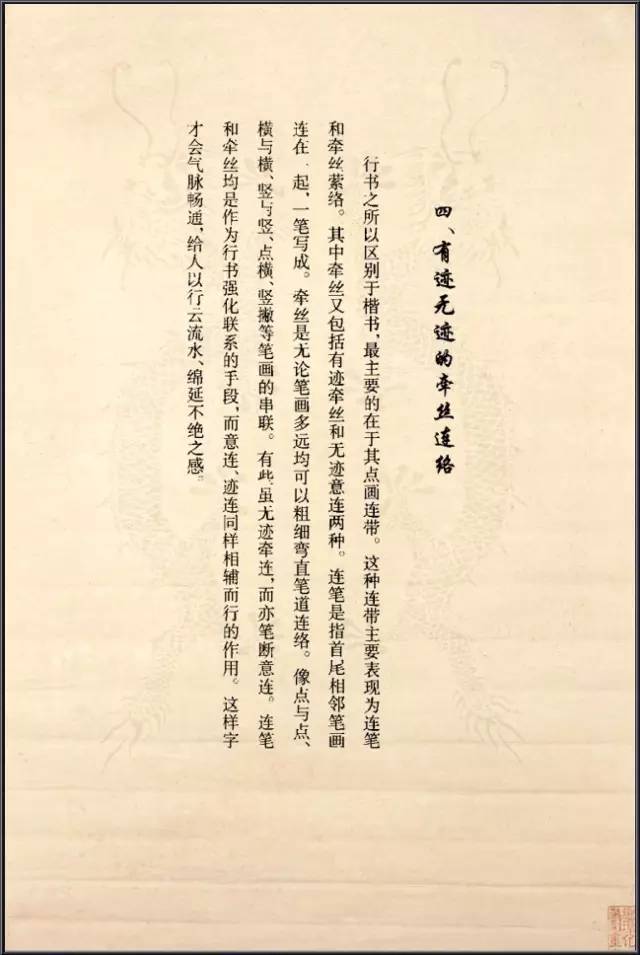 四、有迹无迹的牵丝连络
行书之所以区别于楷书，最主要的在于其点画连带。这种连带主要表现为连笔
和牵丝萦络。其中牵丝又包括有迹牵丝和无迹意连两种。连笔是指首尾相邻笔画
连在一起，一笔写成。牵丝是无论笔画多远均可以粗细弯直笔道连络。像点与点、
横与横、竖与竖、点横、竖撇等笔画的串联。有些虽无迹牵连，而亦笔断意连。连笔
和牵丝均是作为行书强化联系的手段，而意连、迹连同样相辅而行的作用。这样字
才会气脉畅通，给人以行云流水、绵延不绝之感。